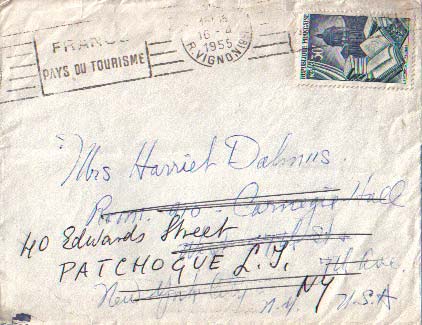 FRANCE
PAYS DU TOURISME
16-4
1955
R. VIGNON
REPUBLIQUE FRANÇAISE
30F
Mrs Harriet Dalmus.
Room - Carnegie Hall
40 Edwards Street
PATCHOGUE L.I.
7th Ave.
New York City
N.Y.
NY
U.S.A